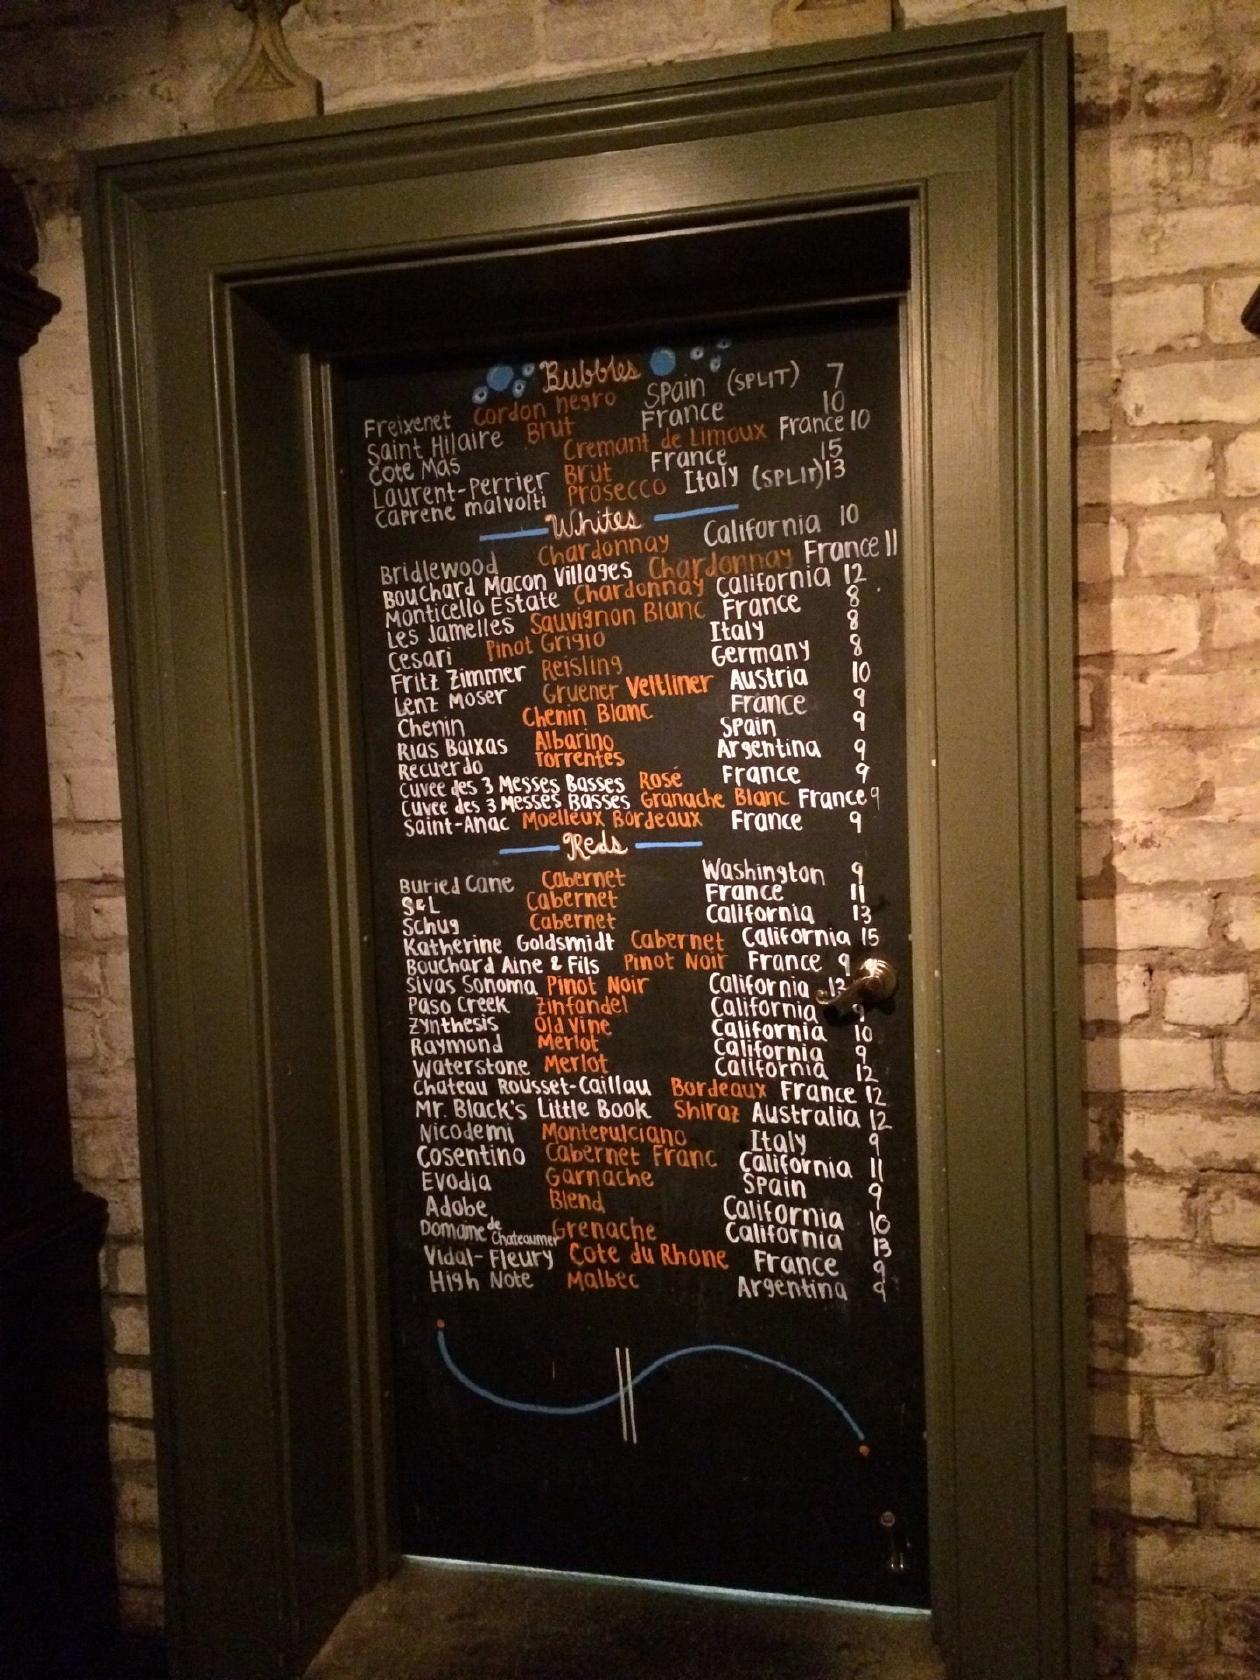 Bubbles
Freixenet Cordon Negro Spain (SPLIT) 7
Saint Hilaire Brut France 10
Cote Mas Cremant de Limoux France 10
Laurent-Perrier Brut France 15
Caprene malvolti Prosecco Italy (SPLIT) 13
Whites
Bridlewood Chardonnay California 10
Bouchard Macon Villages Chardonnay France 11
Monticello Estate Chardonnay California 12
Les Jamelles Sauvignon Blanc France 8
Cesari Pinot Grigio Italy 8
Fritz Zimmer Reisling Germany 8
Lenz Moser Gruener Veltliner Austria 10
Chenin Chenin Blanc France 9
Rias Baixas Albarino Spain 9
Recuerdo Torrentes Argentina 9
Cuvee des 3 Messes Basses Rosé France 9
Cuvee des 3 Messes Basses Granache Blanc France 9
Saint-Anac Moelleux Bordeaux France 9
Reds
Buried Cane Cabernet Washington 9
S&L Cabernet France 11
Schug Cabernet California 13
Katherine Goldsmidt Cabernet California 15
Bouchard Aine & Fils Pinot Noir France 9
Sivas Sonoma Pinot Noir California 13
Paso Creek Zinfandel California 9
Zynthesis Old Vine California 10
Raymond Merlot California 9
Waterstone Merlot California 12
Chateau Rousset-Caillau Bordeaux France 12
Mr. Black's Little Book Shiraz Australia 12
Nicodemi Montepulciano Italy 9
Cosentino Cabernet Franc California 11
Evodia Garnache Spain 9
Adobe Blend California 10
Domaine de Chateaumer Grenache California 13
Vidal-Fleury Cote du Rhone France 9
High Note Malbec Argentina 9